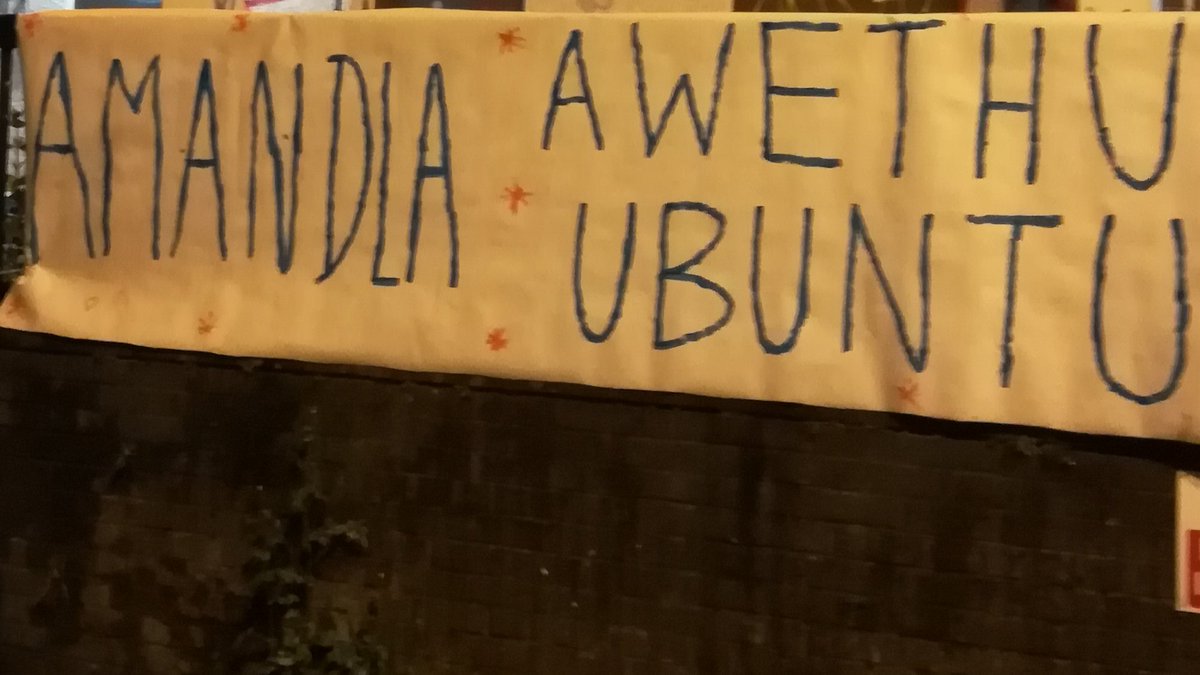 AMANDLA AWETHU
UBUNTU